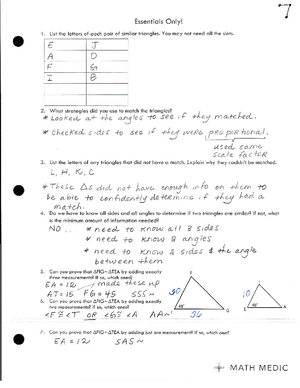 7
Essentials Only!
1. List the letters of each pair of similar triangles. You may not need all the slots.
E J
A D
F G
I B
2. What strategies did you use to match the triangles?
* Looked at the angles to see if they matched.
* Checked sides to see if they were proportional.
used same
scale factor
3. List the letters of any triangles that did not have a match. Explain why they couldn't be matched.
L, H, K, C
* These Δs did not have enough info on them to
be able to confidently determine if they had a
match.
4. Do we have to know all sides and all angles to determine if two triangles are similar? If not, what
is the minimum amount of information needed?
NO.. * need to know all 3 sides
* need to know 2 angles
* need to know 2 sides & the angle
between them
5. Can you prove that ΔFIG~ΔTEA by adding exactly
three measurements? If so, which ones?
EA = 12 made these up
AT = 15 FG = 45 SSS~
6. Can you prove that ΔFIG~ΔTEA by adding exactly
two measurements? If so, which ones?
<F ≅ <T OR <G ≅ <A AA~
30
36
10
7. Can you prove that ΔFIG~ΔTEA by adding just one measurement? If so, which one?
EA = 12 SAS~
MATH MEDIC